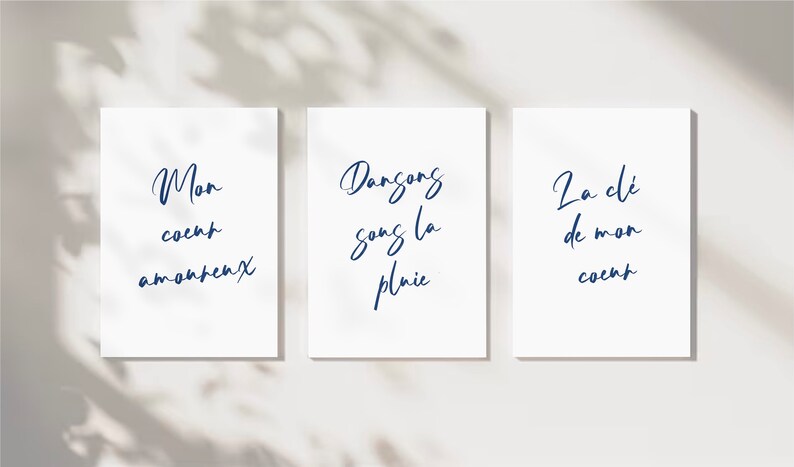 Mon
coeur
amoureux
Dansons
sous la
pluie
La clé
de mon
coeur